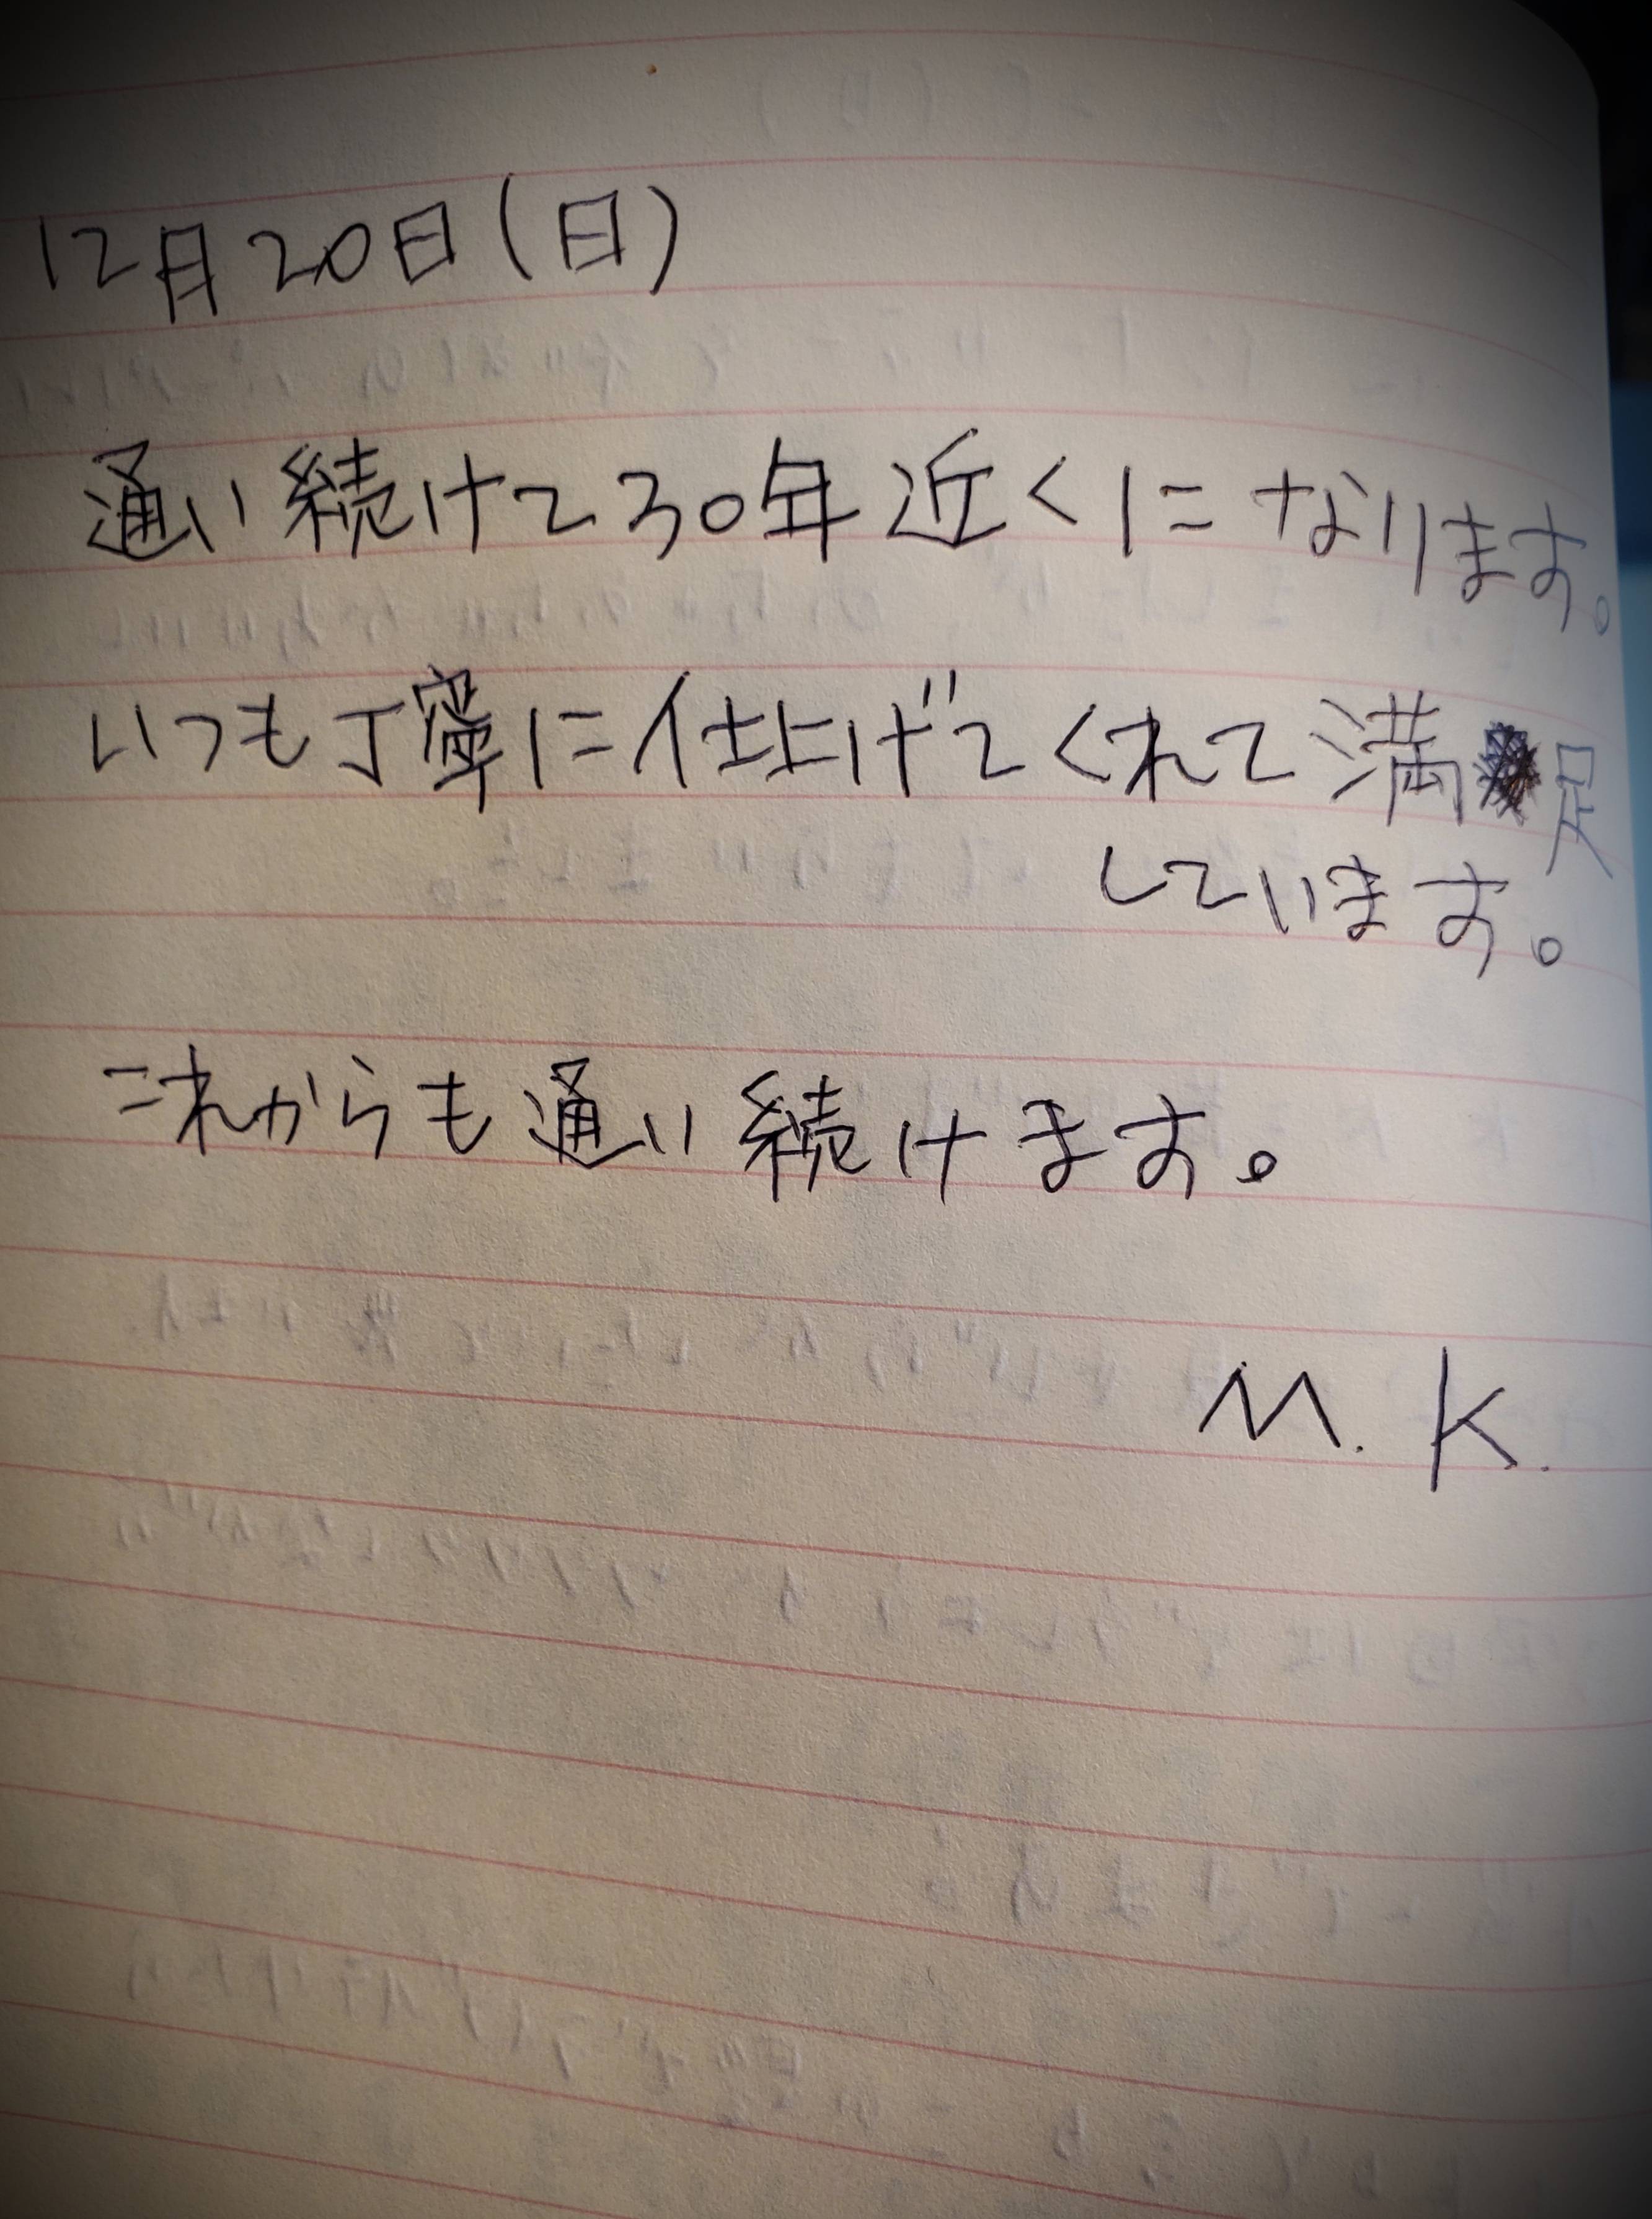 12月20日(日)
通い続けて30年近くになります。
いつも丁寧に仕上げてくれて満足
しています。
これからも通い続けます。
M.K.